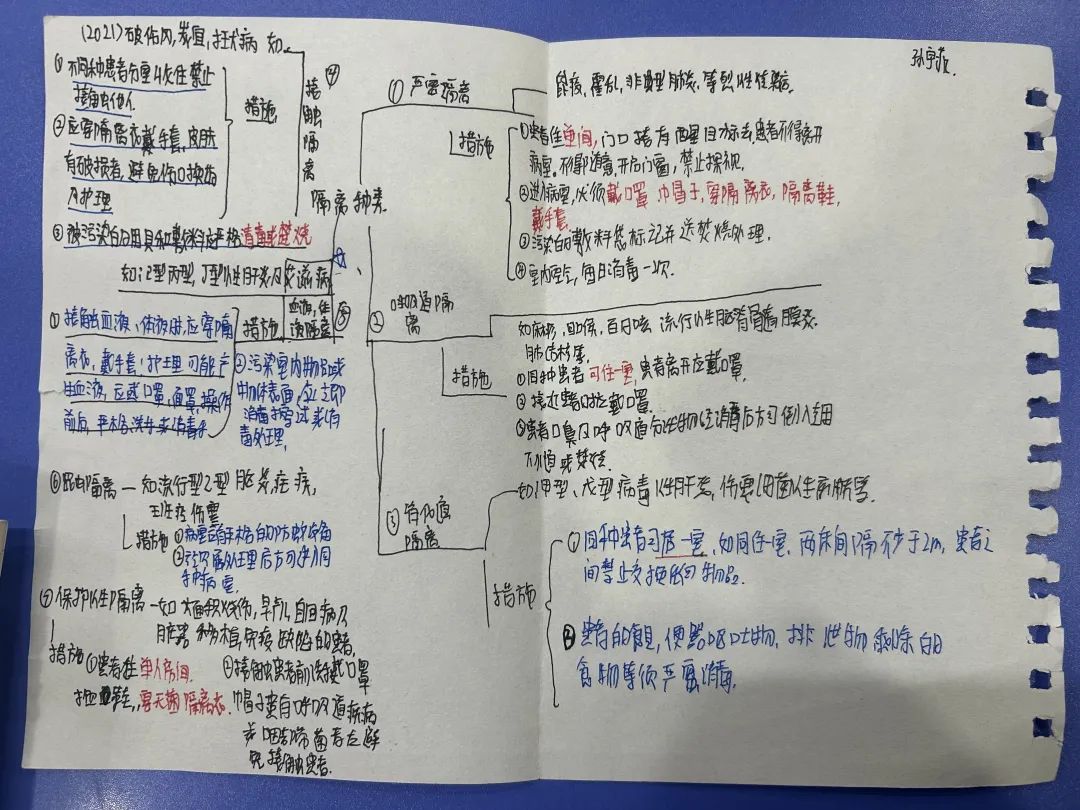 (2021)破伤风,炭疽,狂犬病 如
④接触隔离
措施
①不同种患者分室收住禁止
接触他人
②应穿隔离衣戴手套,皮肤
有破损者,避免伤口换药
及护理
③被污染的用具和敷料应严格消毒或焚烧
隔离种类
如乙型丙型,丁型性肝炎及艾滋病
血液,体液隔离 ⑤
措施
①接触血液、体液时,应穿隔
离衣,戴手套;护理可能产
生血液,应戴口罩,面罩,操作
前后,严格洗手或消毒手
②污染室内物品或
物体表面,应立即
消毒擦拭或消
毒处理,
⑥昆虫隔离—如流行型乙型脑炎,疟疾,
斑疹伤寒
措施 ①病室有严格的防蚊设备
②经灭虱处理后方可进入同
种病室
⑦保护性隔离—如大面积烧伤,早产儿,白血病及
脏器移植,免疫缺陷的患者,
措施 ①患者住单人房间,
穿无菌隔离衣.
②接触患者前洗手,戴口罩
帽子,患有呼吸道疾病
或咽部带菌者应避
免接触患者.
孙宇
①严密隔离
鼠疫,霍乱,非典型肺炎,等烈性传染病.
措施
①患者住单间,门口挂有醒目标志,患者不得离开
病室。不得随意开启门窗,禁止探视.
②进入病室,必须戴口罩 巾冒子,穿隔离衣,隔离鞋,
戴手套.
③污染的敷料 标记并送焚烧处理.
④室内空气,每日消毒一次.
②呼吸道隔离
如麻疹,白喉,百日咳 流行性脑脊髓膜炎
肺结核等.
措施
①同种患者可住一室,患者离开应戴口罩.
②接近患者时应戴口罩.
③患者口鼻及呼吸道分泌物经消毒后方可倒入
下水道或焚烧.
③消化道隔离
如甲型、戊型病毒性肝炎,伤寒 细菌性痢疾等.
措施
①同种患者可居一室,如同住一室,两床间隔不少于2m,患者之
间禁止交换任何物品.
②患者的食具,便器呕吐物、排泄物剩余的
食物等须严密消毒.